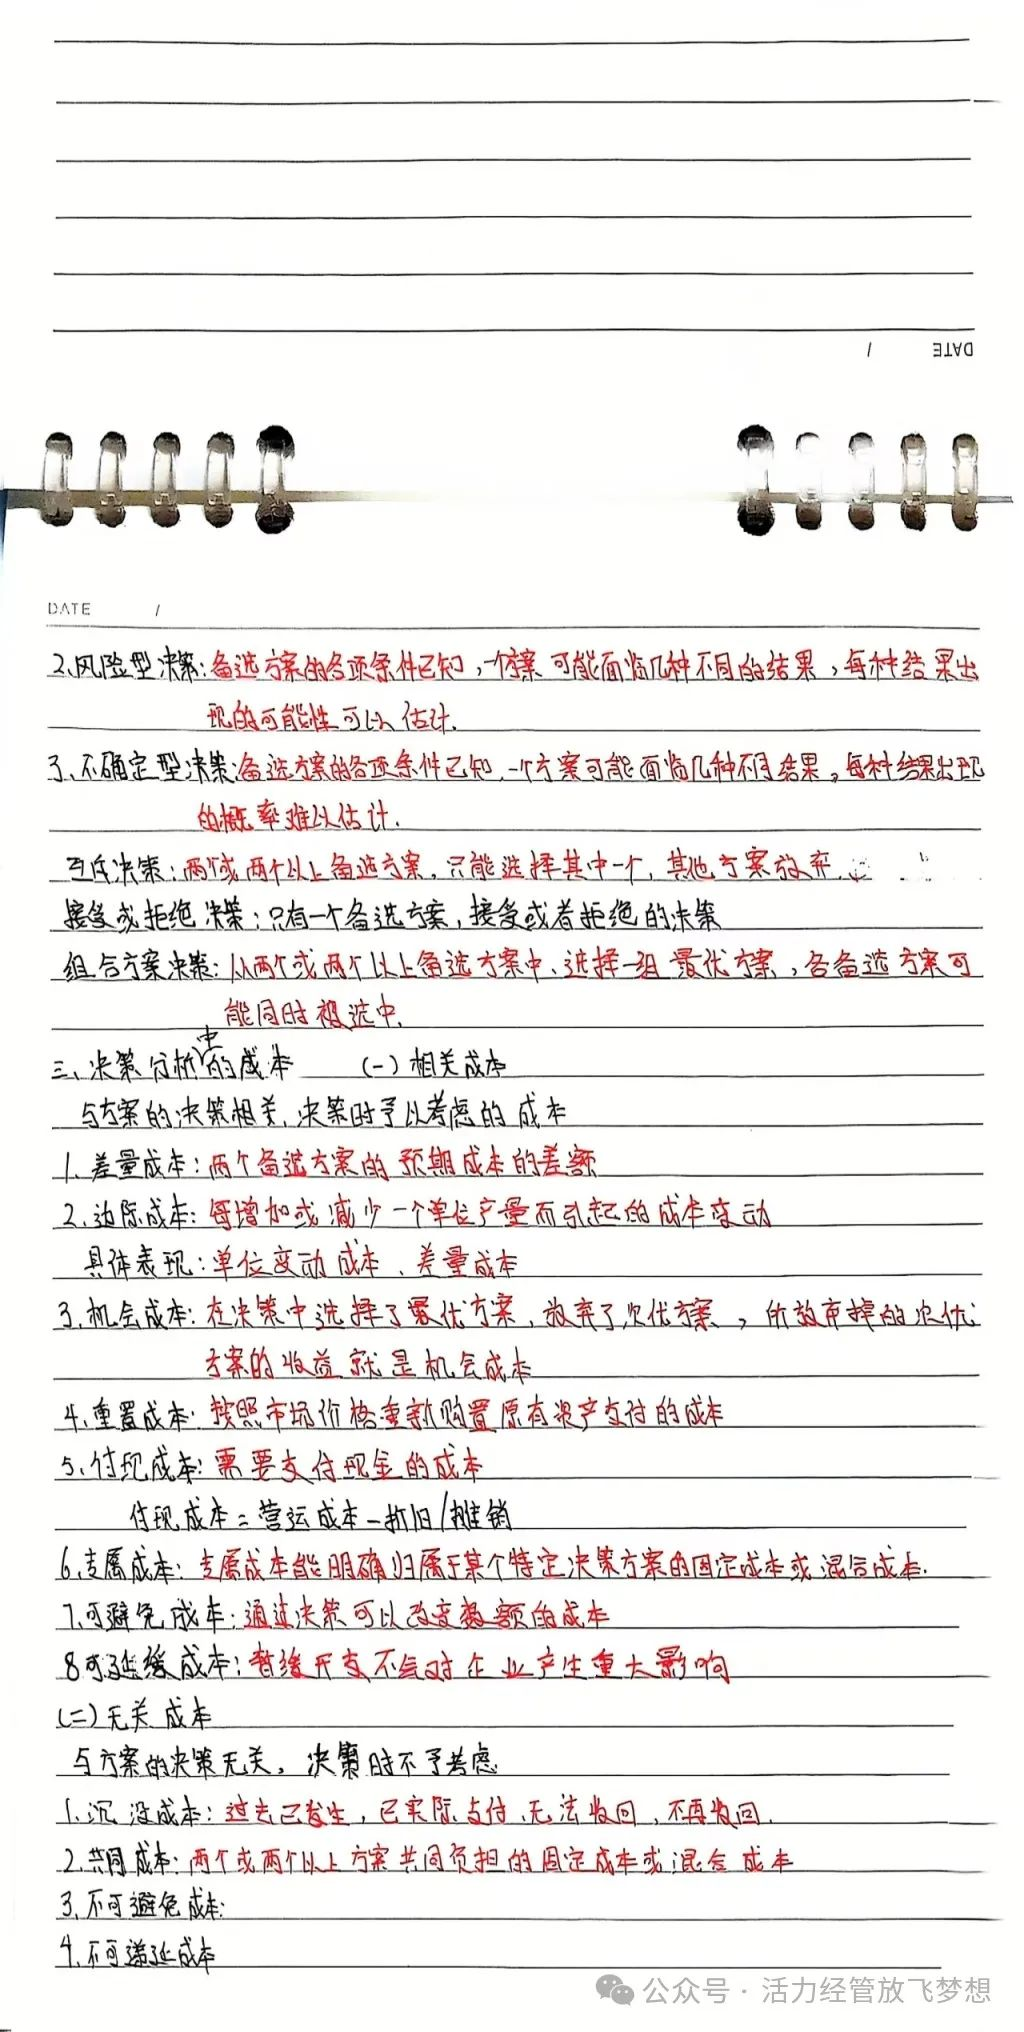 DATE /
DATE /
2、风险型决策：备选方案的各项条件已知，一个方案可能面临几种不同的结果，每种结果出
现的可能性可以估计.
3、不确定型决策：备选方案的各项条件已知，一个方案可能面临几种不同结果，每种结果出现
的概率难以估计.
互斥决策：两个或两个以上备选方案，只能选择其中一个，其他方案放弃.
接受或拒绝决策：只有一个备选方案，接受或者拒绝的决策
组合方案决策：从两个或两个以上备选方案中、选择一组最优方案，各备选方案可
能同时被选中.
三、决策分析中的成本 (一)相关成本
与方案的决策相关，决策时予以考虑的成本
1、差量成本：两个备选方案的预期成本的差额
2、边际成本：每增加或减少一个单位产量而引起的成本变动
具体表现：单位变动成本、差量成本
3、机会成本：在决策中选择了最优方案，放弃了次优方案，所放弃掉的次优
方案的收益就是机会成本
4、重置成本：按照市场价格重新购置原有资产支付的成本
5、付现成本：需要支付现金的成本
付现成本=营运成本-折旧/摊销
6、专属成本：专属成本能明确归属于某个特定决策方案的固定成本或混合成本.
7、可避免成本：通过决策可以改变数额的成本
8可延缓成本：暂缓开支不会对企业产生重大影响
(二)无关成本
与方案的决策无关，决策时不予考虑
1、沉没成本：过去已发生，已实际支付、无法收回，不再收回.
2、共同成本：两个或两个以上方案共同负担的固定成本或混合成本
3、不可避免成本：
4、不可递延成本
公众号·活力经管放飞梦想